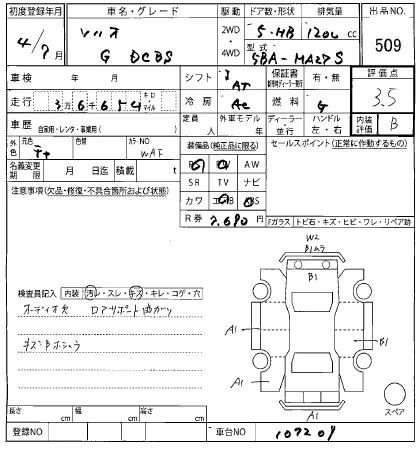 初度登録年月 車名・グレード 駆動 ドア数・形状 排気量 出品NO.
4/7月 ソリオ 2WD 5・HB 1200 cc 509
G DCBS 4WD 型式 5BA-MA27S
車検 年 月 シフト AT 保証書 有・無 評価点
走行 3万6千654 キロ マイル 冷房 AC 燃料 G 3.5
車歴 自家用・レンタ・事業用( ) 定員 人 外車モデル 年 ディーラー・並行 ハンドル 左・右 内装評価 B
外色 元色 色替 カラーNO WAF 装備品(純正品に限る) セールスポイント(正常に作動するもの)
名義変更期限 月 日迄 積載 t AW
注意事項(欠品・修復・不具合箇所および状態) SR TV ナビ
カワ
R券 7,690円
Fガラス トビ石・キズ・ヒビ・ワレ・リペア跡
W2
Bムラ
B1
検査員記入 内装 汚レ・スレ・キズ・キレ・コゲ・穴
オーディオ欠 ロアサポート曲がり
A1
B1
A1
A1
スペア
長さ cm 幅 cm 高さ cm
登録NO 車台NO 107209